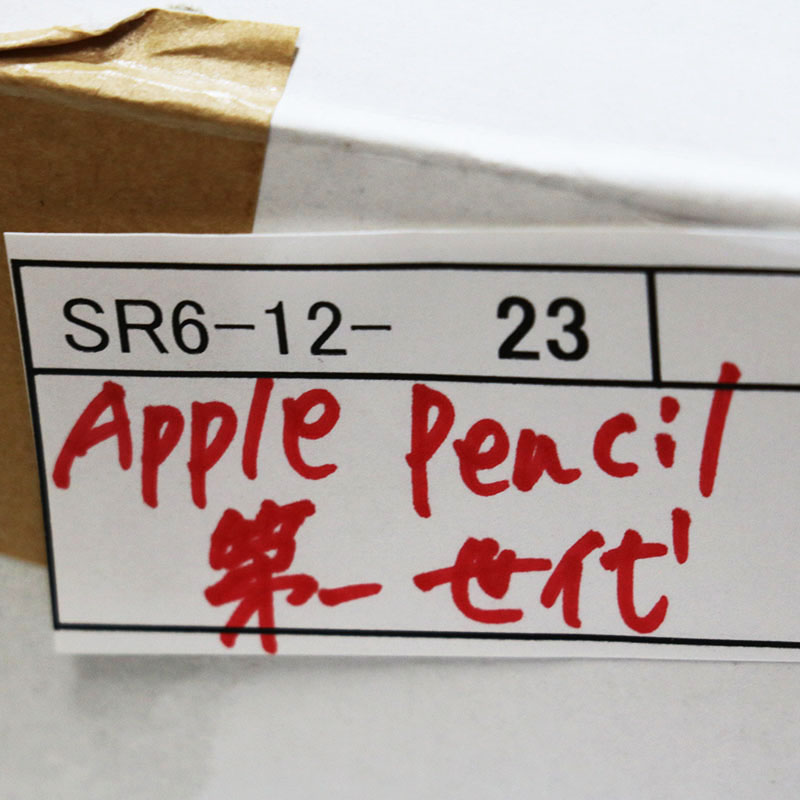 SR6-12- 23
Apple Pencil
第一世代